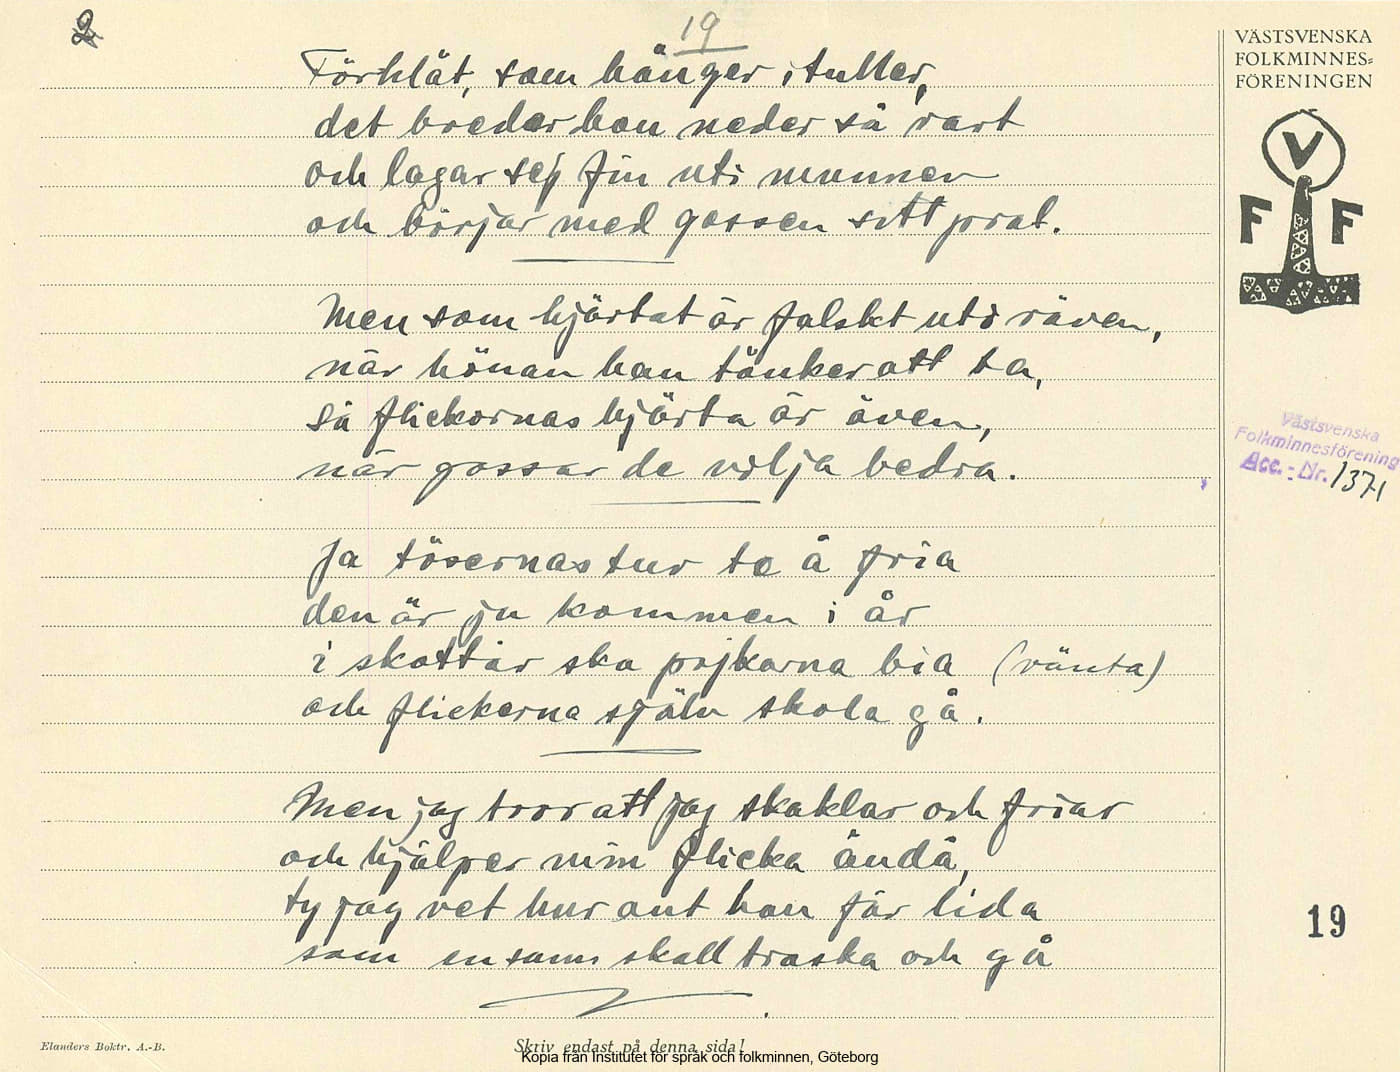 2
19
Förklät, som hänger i tuller,
det breder hon neder så rart
och lagar sej fin uti munnen
och börjar med gossen sitt prat.
Men som hjärtat är falskt uti räven,
när hönan han tänker att ta,
så flickornas hjärta är även,
när gossar de vilja bedra.
Ja tösernas tur te å fria
den är ju kommen i år
i skottår ska pojkarna bia (vänta)
och flickerna själv skola gå.
Men jag tror att jag skaklar och friar
och hjälper min flicka ändå,
ty jag vet hur ont han får lida
som ensam skall traska och gå
VÄSTSVENSKA
FOLKMINNES=
FÖRENINGEN
V
F F
Västsvenska
Folkminnesförening
Acc.-Nr. 1371
19
Elanders Boktr. A.-B.
Skriv endast på denna sida!
Kopia från Institutet för språk och folkminnen, Göteborg